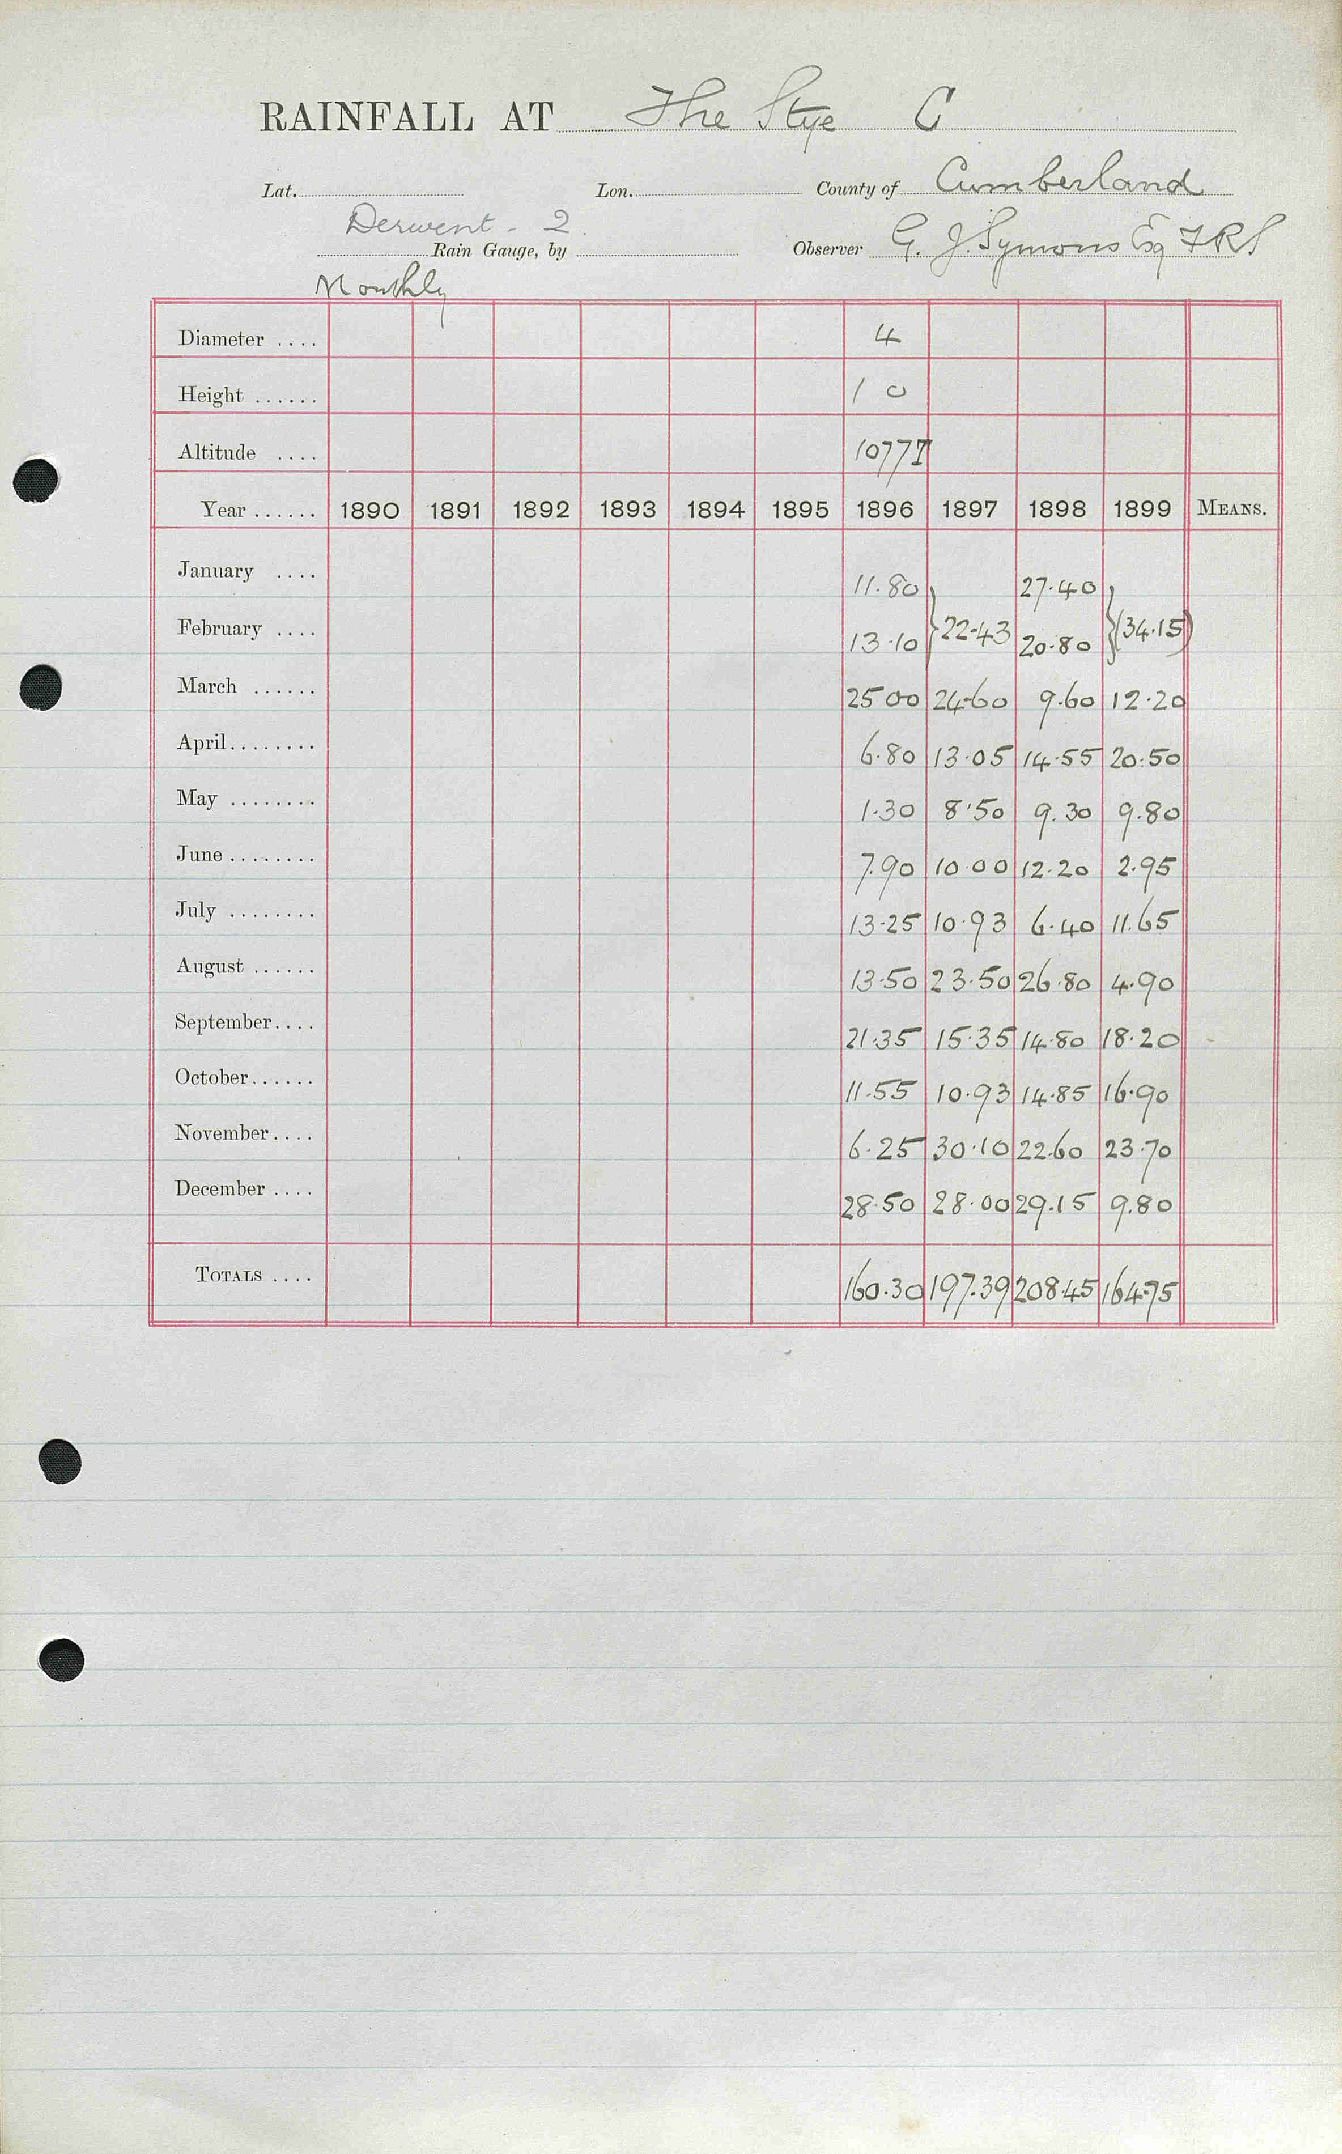 RAINFALL AT The Stye C
Lat. Lon. County of Cumberland
Derwent - 2.
Rain Gauge, by Observer G. J. Symons Esq FRS
Monthly
Diameter .... 4
Height ...... 1 0
Altitude .... 1077T
Year ...... 1890 1891 1892 1893 1894 1895 1896 1897 1898 1899 MEANS.
January .... 11.80 27.40
February .... 13.10 } 22.43 20.80 } (34.15)
March ...... 25 00 24.60 9.60 12.20
April........ 6.80 13.05 14.55 20.50
May ........ 1.30 8.50 9.30 9.80
June ........ 7.90 10.00 12.20 2.95
July ........ 13.25 10.93 6.40 11.65
August ...... 13.50 23.50 26.80 4.90
September.... 21.35 15.35 14.80 18.20
October...... 11.55 10.93 14.85 16.90
November.... 6.25 30.10 22.60 23.70
December .... 28.50 28.00 29.15 9.80
TOTALS .... 160.30 197.39 208.45 164.75